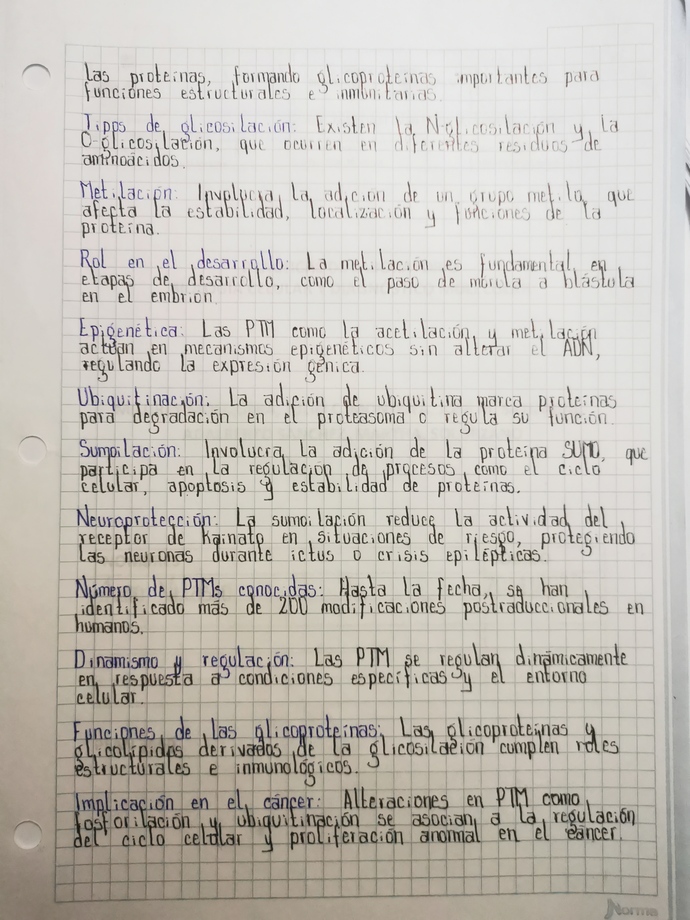 las proteínas, formando glicoproteínas importantes para
funciones estructurales e inmunitarias.
Tipos de glicosilación: Existen la N-glicosilación y la
O-glicosilación, que ocurren en diferentes residuos de
aminoácidos.
Metilación: Involucra la adición de un grupo metilo, que
afecta la estabilidad, localización y funciones de la
proteína.
Rol en el desarrollo: La metilación es fundamental en
etapas de desarrollo, como el paso de mórula a blástula
en el embrión.
Epigenética: Las PTM como la acetilación y metilación
actúan en mecanismos epigenéticos sin alterar el ADN,
regulando la expresión génica.
Ubiquitinación: La adición de ubiquitina marca proteínas
para degradación en el proteasoma o regula su función.
Sumoilación: Involucra la adición de la proteína SUMO, que
participa en la regulación de procesos como el ciclo
celular, apoptosis y estabilidad de proteínas.
Neuroprotección: La sumoilación reduce la actividad del
receptor de Kainato en situaciones de riesgo, protegiendo
las neuronas durante ictus o crisis epilépticas.
Número de PTMs conocidas: Hasta la fecha, se han
identificado más de 200 modificaciones postraduccionales en
humanos.
Dinamismo y regulación: Las PTM se regulan dinámicamente
en respuesta a condiciones específicas y el entorno
celular.
Funciones de las glicoproteínas: Las glicoproteínas y
glicolípidos derivados de la glicosilación cumplen roles
estructurales e inmunológicos.
Implicación en el cáncer: Alteraciones en PTM como
fosforilación y ubiquitinación se asocian a la regulación
del ciclo celular y proliferación anormal en el cáncer.
Norma